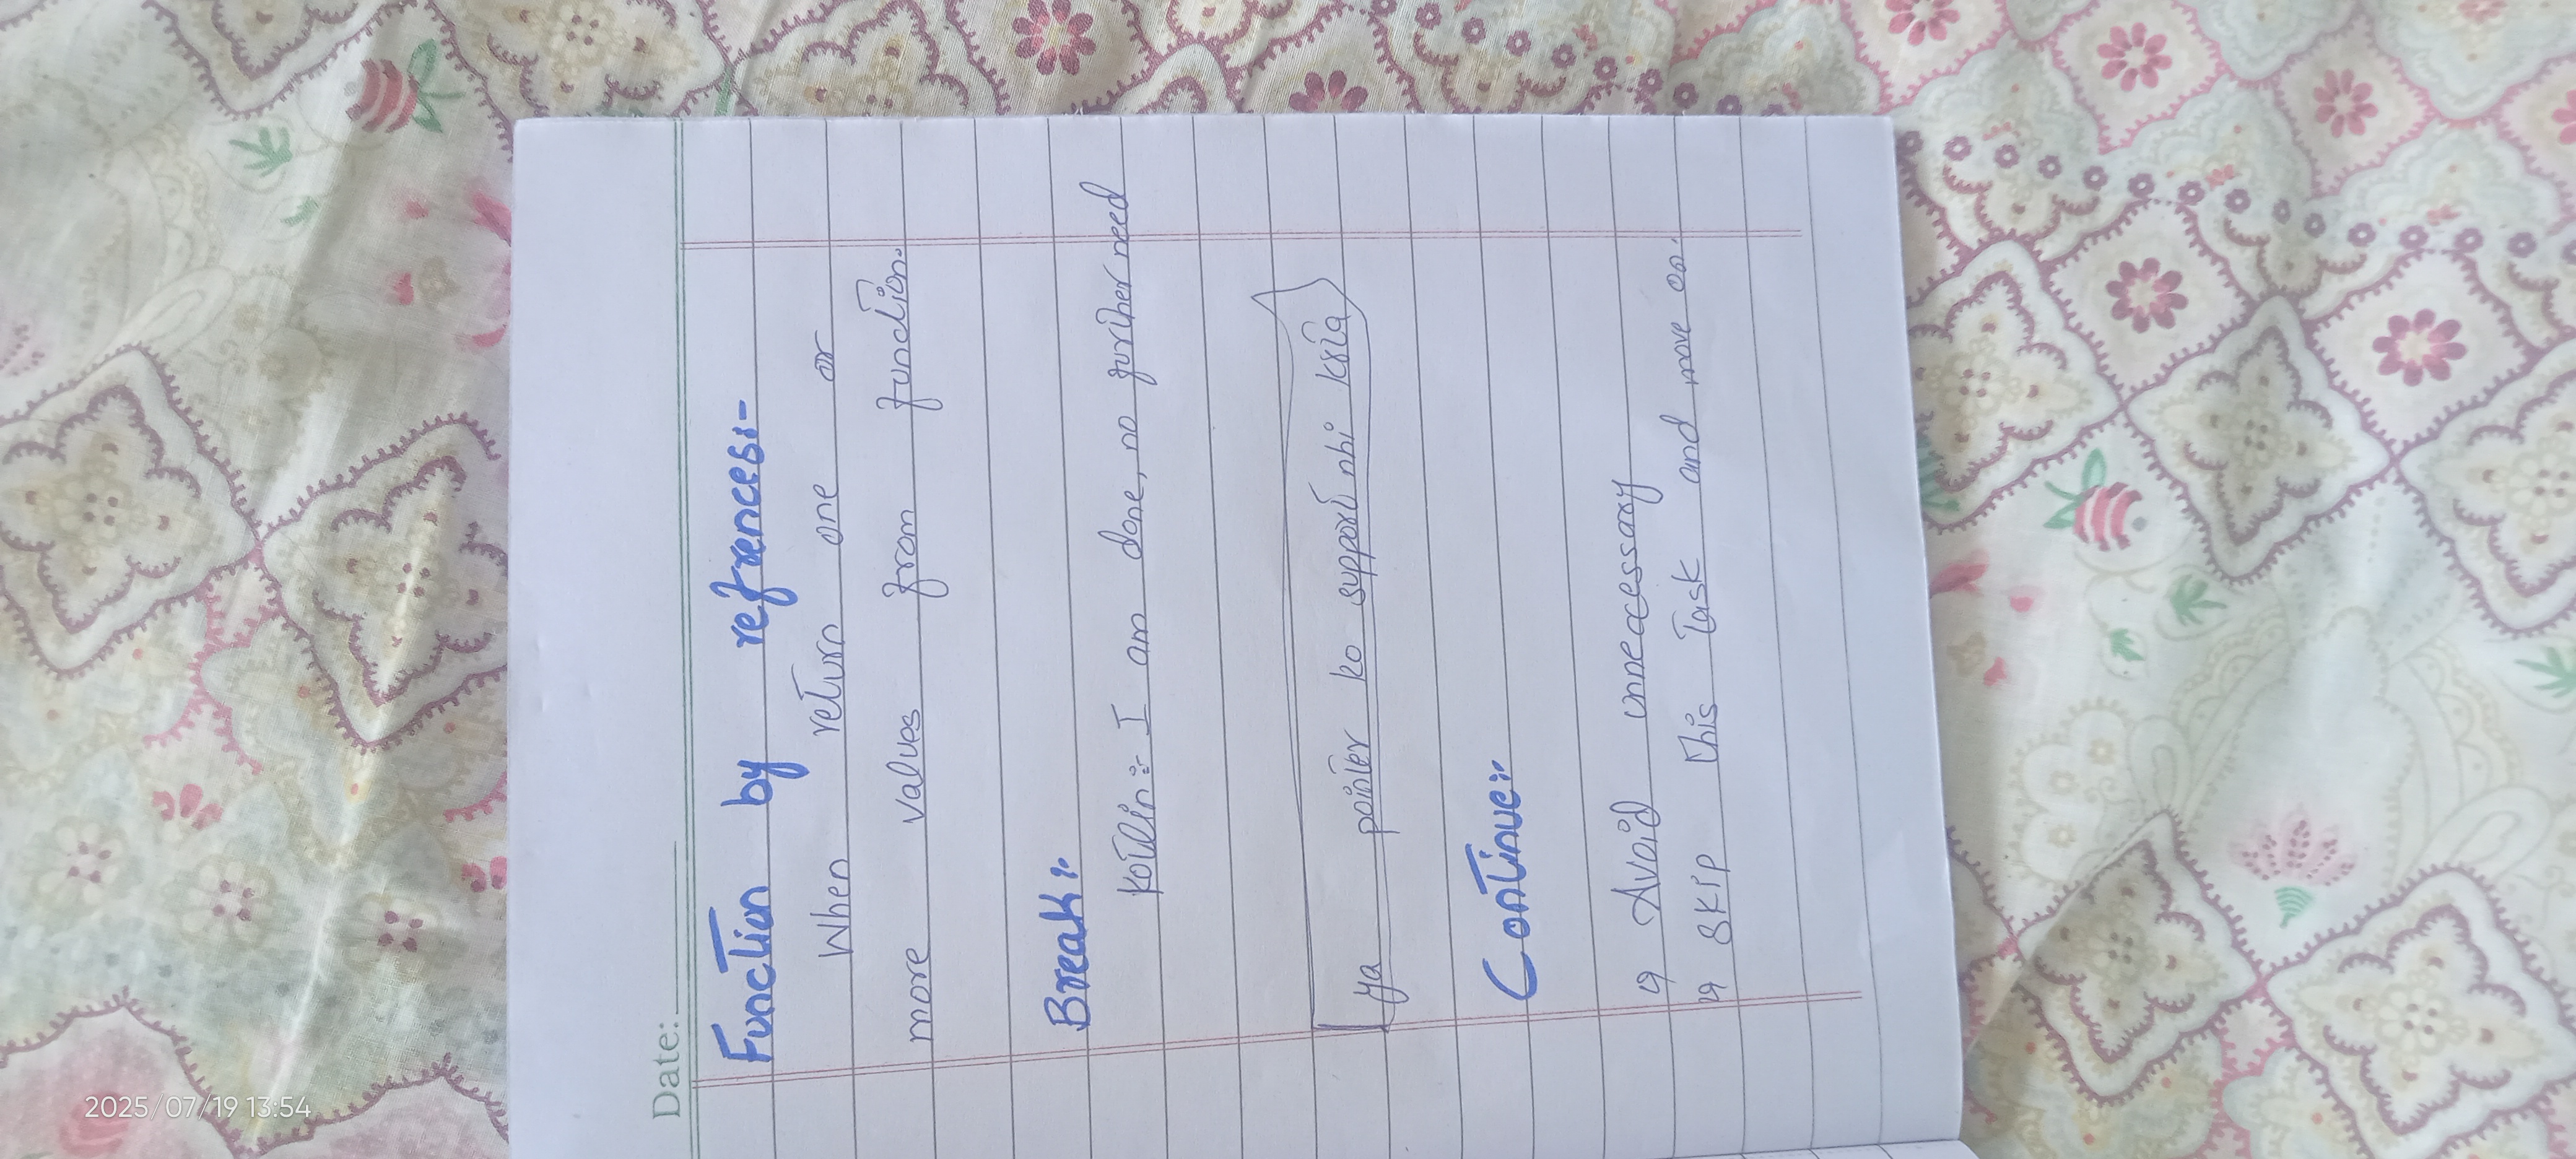 2025/07/19 13:54
Date:
Function by refrences:-
When return one or
more values from function.
Break :-
Kotlin :- I am done, no further need
ya pointer ko support nhi krta
Continue:-
Avoid unnecessary
skip this task and move on.